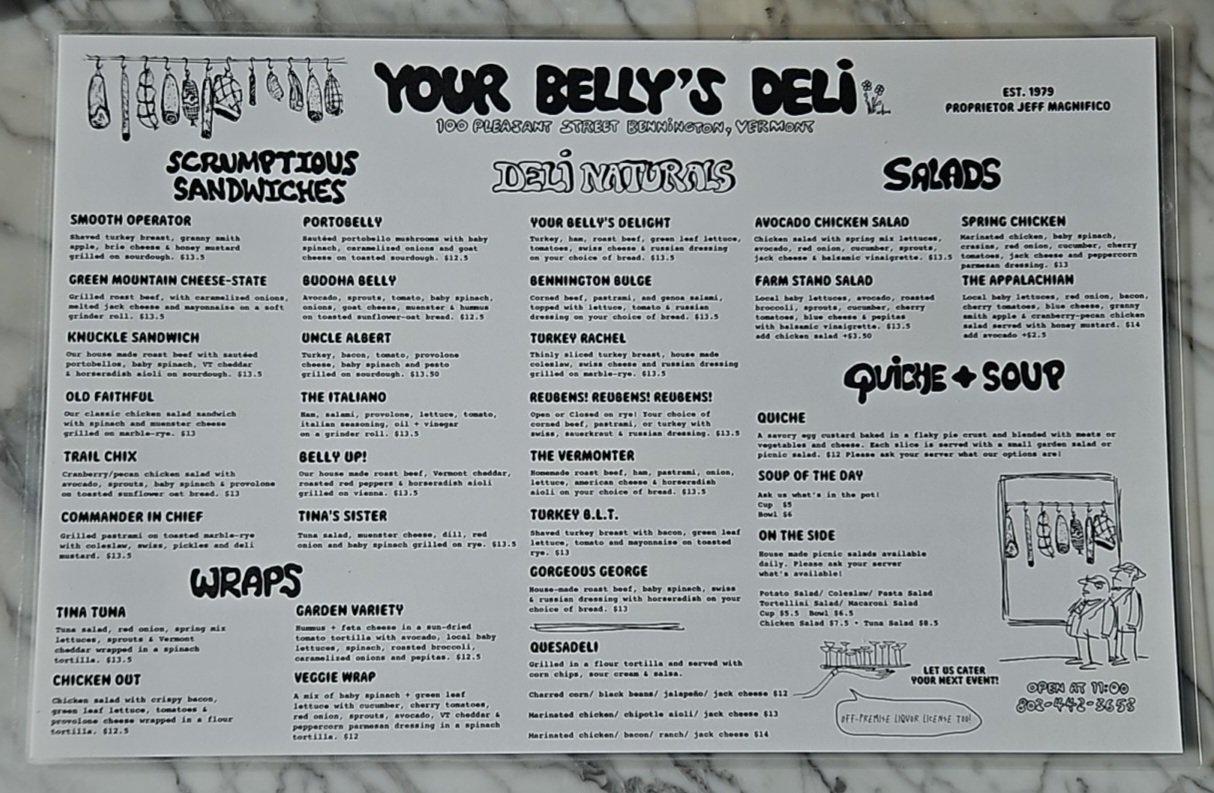 YOUR BELLY'S DELI
100 PLEASANT STREET BENNINGTON, VERMONT
EST. 1979
PROPRIETOR JEFF MAGNIFICO
SCRUMPTIOUS
SANDWICHES
SMOOTH OPERATOR
Shaved turkey breast, granny smith
apple, brie cheese & honey mustard
grilled on sourdough. $13.5
GREEN MOUNTAIN CHEESE-STATE
Grilled roast beef, with caramelized onions,
melted jack cheese and mayonnaise on a soft
grinder roll. $13.5
KNUCKLE SANDWICH
Our house made roast beef with sautéed
portobellos, baby spinach, VT cheddar
& horseradish aioli on sourdough. $13.5
OLD FAITHFUL
Our classic chicken salad sandwich
with spinach and muenster cheese
grilled on marble-rye. $13
TRAIL CHIX
Cranberry/pecan chicken salad with
avocado, sprouts, baby spinach & provolone
on toasted sunflower oat bread. $13
COMMANDER IN CHIEF
Grilled pastrami on toasted marble-rye
with coleslaw, swiss, pickles and deli
mustard. $13.5
PORTOBELLY
Sautéed portobello mushrooms with baby
spinach, caramelized onions and goat
cheese on toasted sourdough. $12.5
BUDDHA BELLY
Avocado, sprouts, tomato, baby spinach,
onions, goat cheese, muenster & hummus
on toasted sunflower-oat bread. $12.5
UNCLE ALBERT
Turkey, bacon, tomato, provolone
cheese, baby spinach and pesto
grilled on sourdough. $13.50
THE ITALIANO
Ham, salami, provolone, lettuce, tomato,
italian seasoning, oil + vinegar
on a grinder roll. $13.5
BELLY UP!
Our house made roast beef, Vermont cheddar,
roasted red peppers & horseradish aioli
grilled on vienna. $13.5
TINA'S SISTER
Tuna salad, muenster cheese, dill, red
onion and baby spinach grilled on rye. $13.5
WRAPS
TINA TUNA
Tuna salad, red onion, spring mix
lettuces, sprouts & Vermont
cheddar wrapped in a spinach
tortilla. $13.5
CHICKEN OUT
Chicken salad with crispy bacon,
green leaf lettuce, tomatoes &
provolone cheese wrapped in a flour
tortilla. $12.5
GARDEN VARIETY
Hummus + feta cheese in a sun-dried
tomato tortilla with avocado, local baby
lettuces, spinach, roasted broccoli,
caramelized onions and pepitas. $12.5
VEGGIE WRAP
A mix of baby spinach + green leaf
lettuce with cucumber, cherry tomatoes,
red onion, sprouts, avocado, VT cheddar &
peppercorn parmesan dressing in a spinach
tortilla. $12
DELI NATURALS
YOUR BELLY'S DELIGHT
Turkey, ham, roast beef, green leaf lettuce,
tomatoes, swiss cheese & russian dressing
on your choice of bread. $13.5
BENNINGTON BULGE
Corned beef, pastrami, and genoa salami,
topped with lettuce, tomato & russian
dressing on your choice of bread. $13.5
TURKEY RACHEL
Thinly sliced turkey breast, house made
coleslaw, swiss cheese and russian dressing
grilled on marble-rye. $13.5
REUBENS! REUBENS! REUBENS!
Open or Closed on rye! Your choice of
corned beef, pastrami, or turkey with
swiss, sauerkraut & russian dressing. $13.5
THE VERMONTER
Homemade roast beef, ham, pastrami, onion,
lettuce, american cheese & horseradish
aioli on your choice of bread. $13.5
TURKEY B.L.T.
Shaved turkey breast with bacon, green leaf
lettuce, tomato and mayonnaise on toasted
rye. $13
GORGEOUS GEORGE
House-made roast beef, baby spinach, swiss
& russian dressing with horseradish on your
choice of bread. $13
QUESADELI
Grilled in a flour tortilla and served with
corn chips, sour cream & salsa.
Charred corn/ black beans/ jalapeño/ jack cheese $12
Marinated chicken/ chipotle aioli/ jack cheese $13
Marinated chicken/ bacon/ ranch/ jack cheese $14
SALADS
AVOCADO CHICKEN SALAD
Chicken salad with spring mix lettuces,
avocado, red onion, cucumber, sprouts,
jack cheese & balsamic vinaigrette. $13.5
FARM STAND SALAD
Local baby lettuces, avocado, roasted
broccoli, sprouts, cucumber, cherry
tomatoes, blue cheese & pepitas
with balsamic vinaigrette. $13.5
add chicken salad +$3.50
SPRING CHICKEN
Marinated chicken, baby spinach,
crasins, red onion, cucumber, cherry
tomatoes, jack cheese and peppercorn
parmesan dressing. $13
THE APPALACHIAN
Local baby lettuces, red onion, bacon,
cherry tomatoes, blue cheese, granny
smith apple & cranberry-pecan chicken
salad served with honey mustard. $14
add avocado +$2.5
QUICHE + SOUP
QUICHE
A savory egg custard baked in a flaky pie crust and blended with meats or
vegetables and cheese. Each slice is served with a small garden salad or
picnic salad. $12 Please ask your server what our options are!
SOUP OF THE DAY
Ask us what's in the pot!
Cup $5
Bowl $6
ON THE SIDE
House made picnic salads available
daily. Please ask your server
what's available!
Potato Salad/ Coleslaw/ Pasta Salad
Tortellini Salad/ Macaroni Salad
Cup $5.5 Bowl $6.5
Chicken Salad $7.5 - Tuna Salad $8.5
LET US CATER
YOUR NEXT EVENT!
OFF-PREMISE LIQUOR LICENSE TOO!
OPEN AT 11:00
802-442-3653